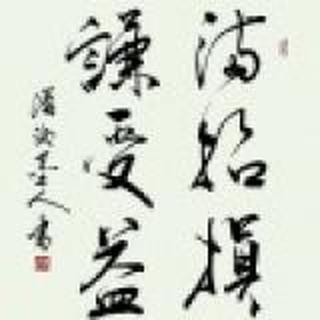 滿招損
謙受益
人書